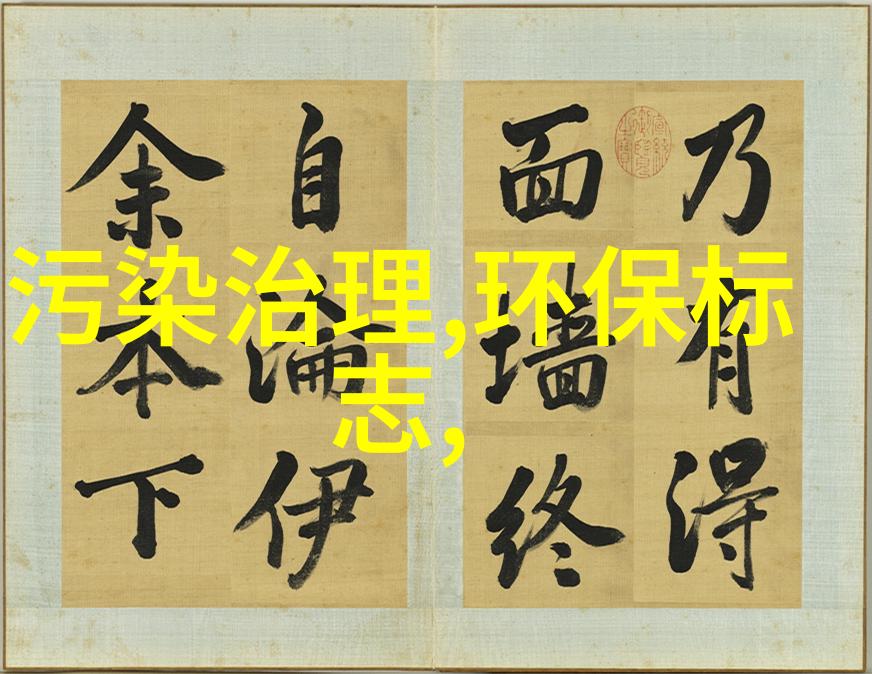 乃有得
面墻終
自淪伊
余本下
污染治理,环保标
志,